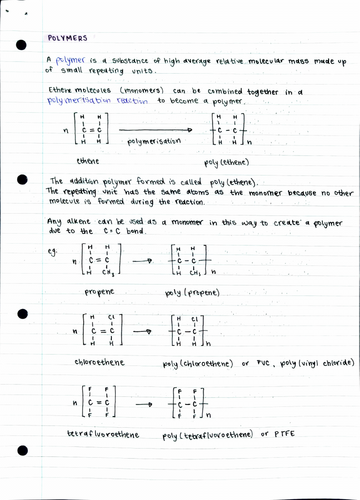 POLYMERS
A polymer is a substance of high average relative molecular mass made up
of small repeating units.
Ethene molecules (monomers) can be combined together in a
polymerisation reaction to become a polymer.
H H H H
n C = C C - C
H H H H n
polymerisation
ethene poly(ethene)
The addition polymer formed is called poly(ethene).
The repeating unit has the same atoms as the monomer because no other
molecule is formed during the reaction.
Any alkene can be used as a monomer in this way to create a polymer
due to the C=C bond.
eg. H H H H
n C = C C - C
H CH3 H CH3 n
propene poly(propene)
H Cl H Cl
n C = C C - C
H H H H n
chloroethene poly(chloroethene) or PVC, poly(vinyl chloride)
F F F F
n C = C C - C
F F F F n
tetrafluoroethene poly(tetrafluoroethene) or PTFE